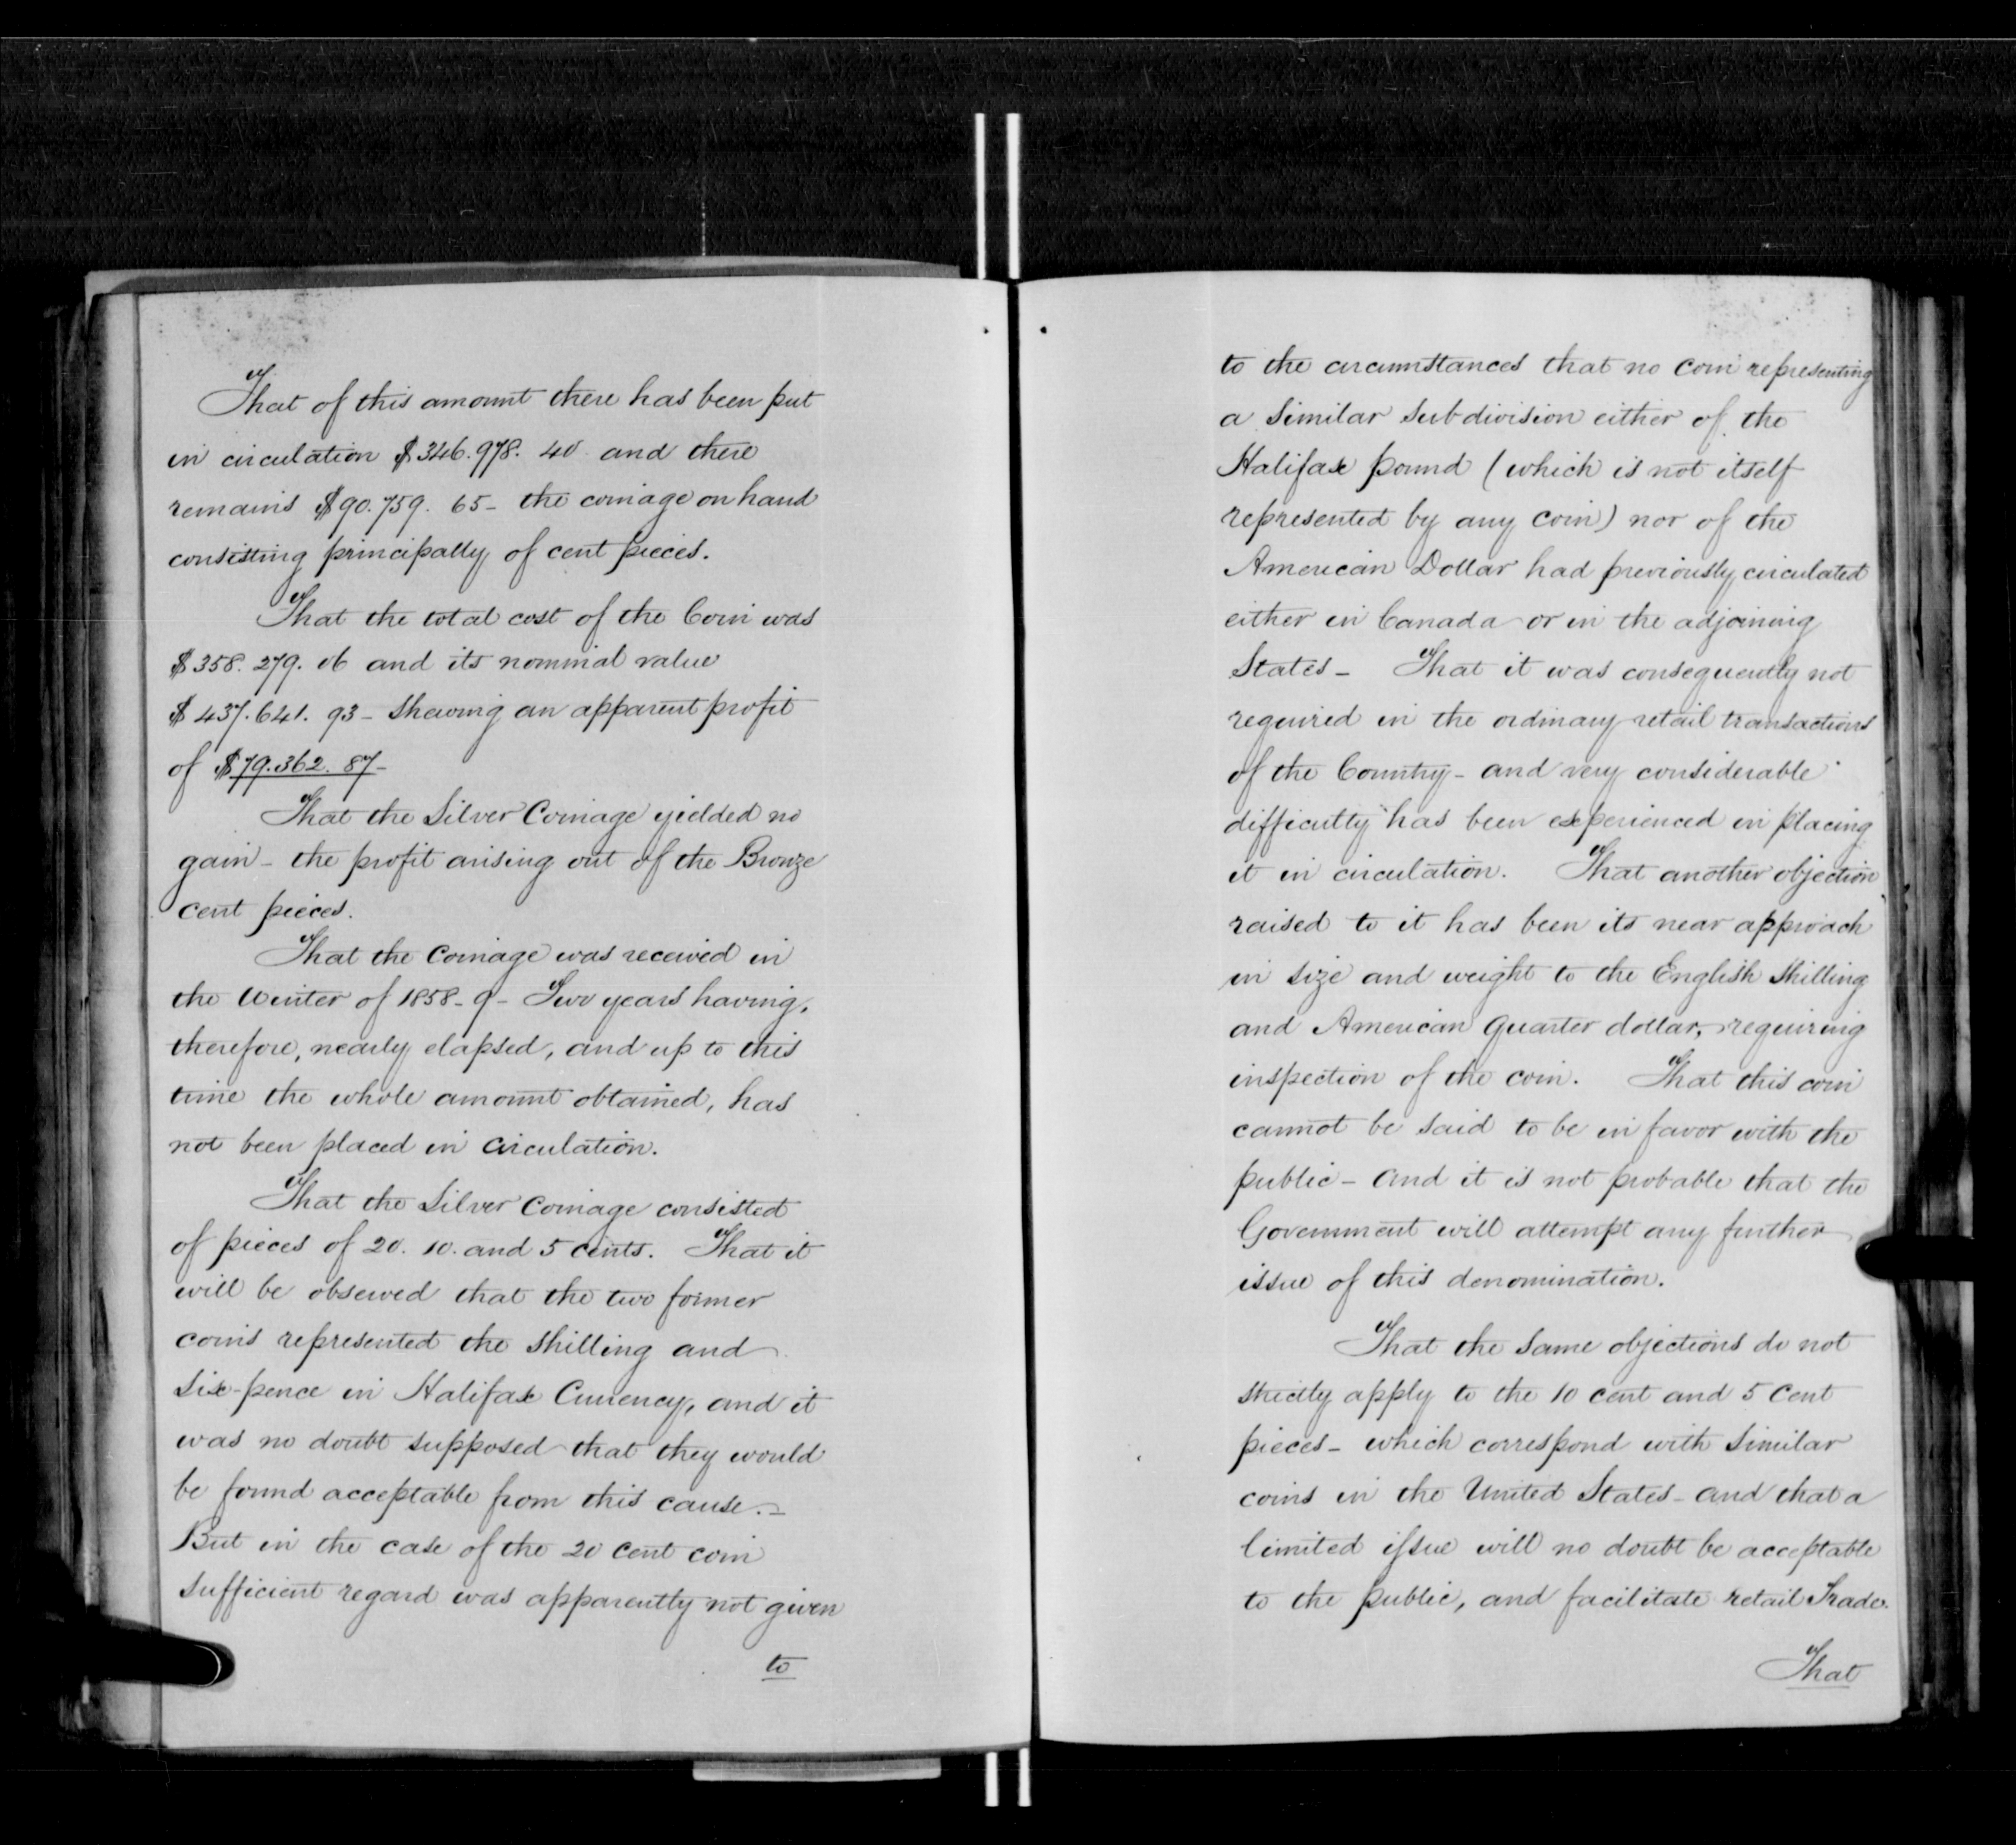 That of this amount there has been put
in circulation $346.978. 40 and there
remains $90.759. 65 - the coinage on hand
consisting principally of cent pieces.
That the total cost of the Coin was
$358. 279. 06 and its nominal value
$437.641. 93 - shewing an apparent profit
of $79.362. 87 -
That the Silver Coinage yielded no
gain - the profit arising out of the Bronze
cent pieces.
That the Coinage was received in
the Winter of 1858-9 - Two years having,
therefore, nearly elapsed, and up to this
time the whole amount obtained, has
not been placed in circulation.
That the Silver Coinage consisted
of pieces of 20. 10. and 5 cents. That it
will be observed that the two former
coins represented the shilling and
six-pence in Halifax Currency, and it
was no doubt supposed that they would
be found acceptable from this cause. -
But in the case of the 20 cent coin
sufficient regard was apparently not given
to
to the circumstances that no coin representing
a similar subdivision either of the
Halifax pound (which is not itself
represented by any coin) nor of the
American Dollar had previously circulated
either in Canada or in the adjoining
States - That it was consequently not
required in the ordinary retail transactions
of the Country - and very considerable
difficulty has been experienced in placing
it in circulation. That another objection
raised to it has been its near approach
in size and weight to the English Shilling
and American Quarter dollar, requiring
inspection of the coin. That this coin
cannot be said to be in favor with the
public - and it is not probable that the
Government will attempt any further
issue of this denomination.
That the same objections do not
strictly apply to the 10 cent and 5 Cent
pieces - which correspond with similar
coins in the United States - and that a
limited issue will no doubt be acceptable
to the public, and facilitate retail Trade.
That